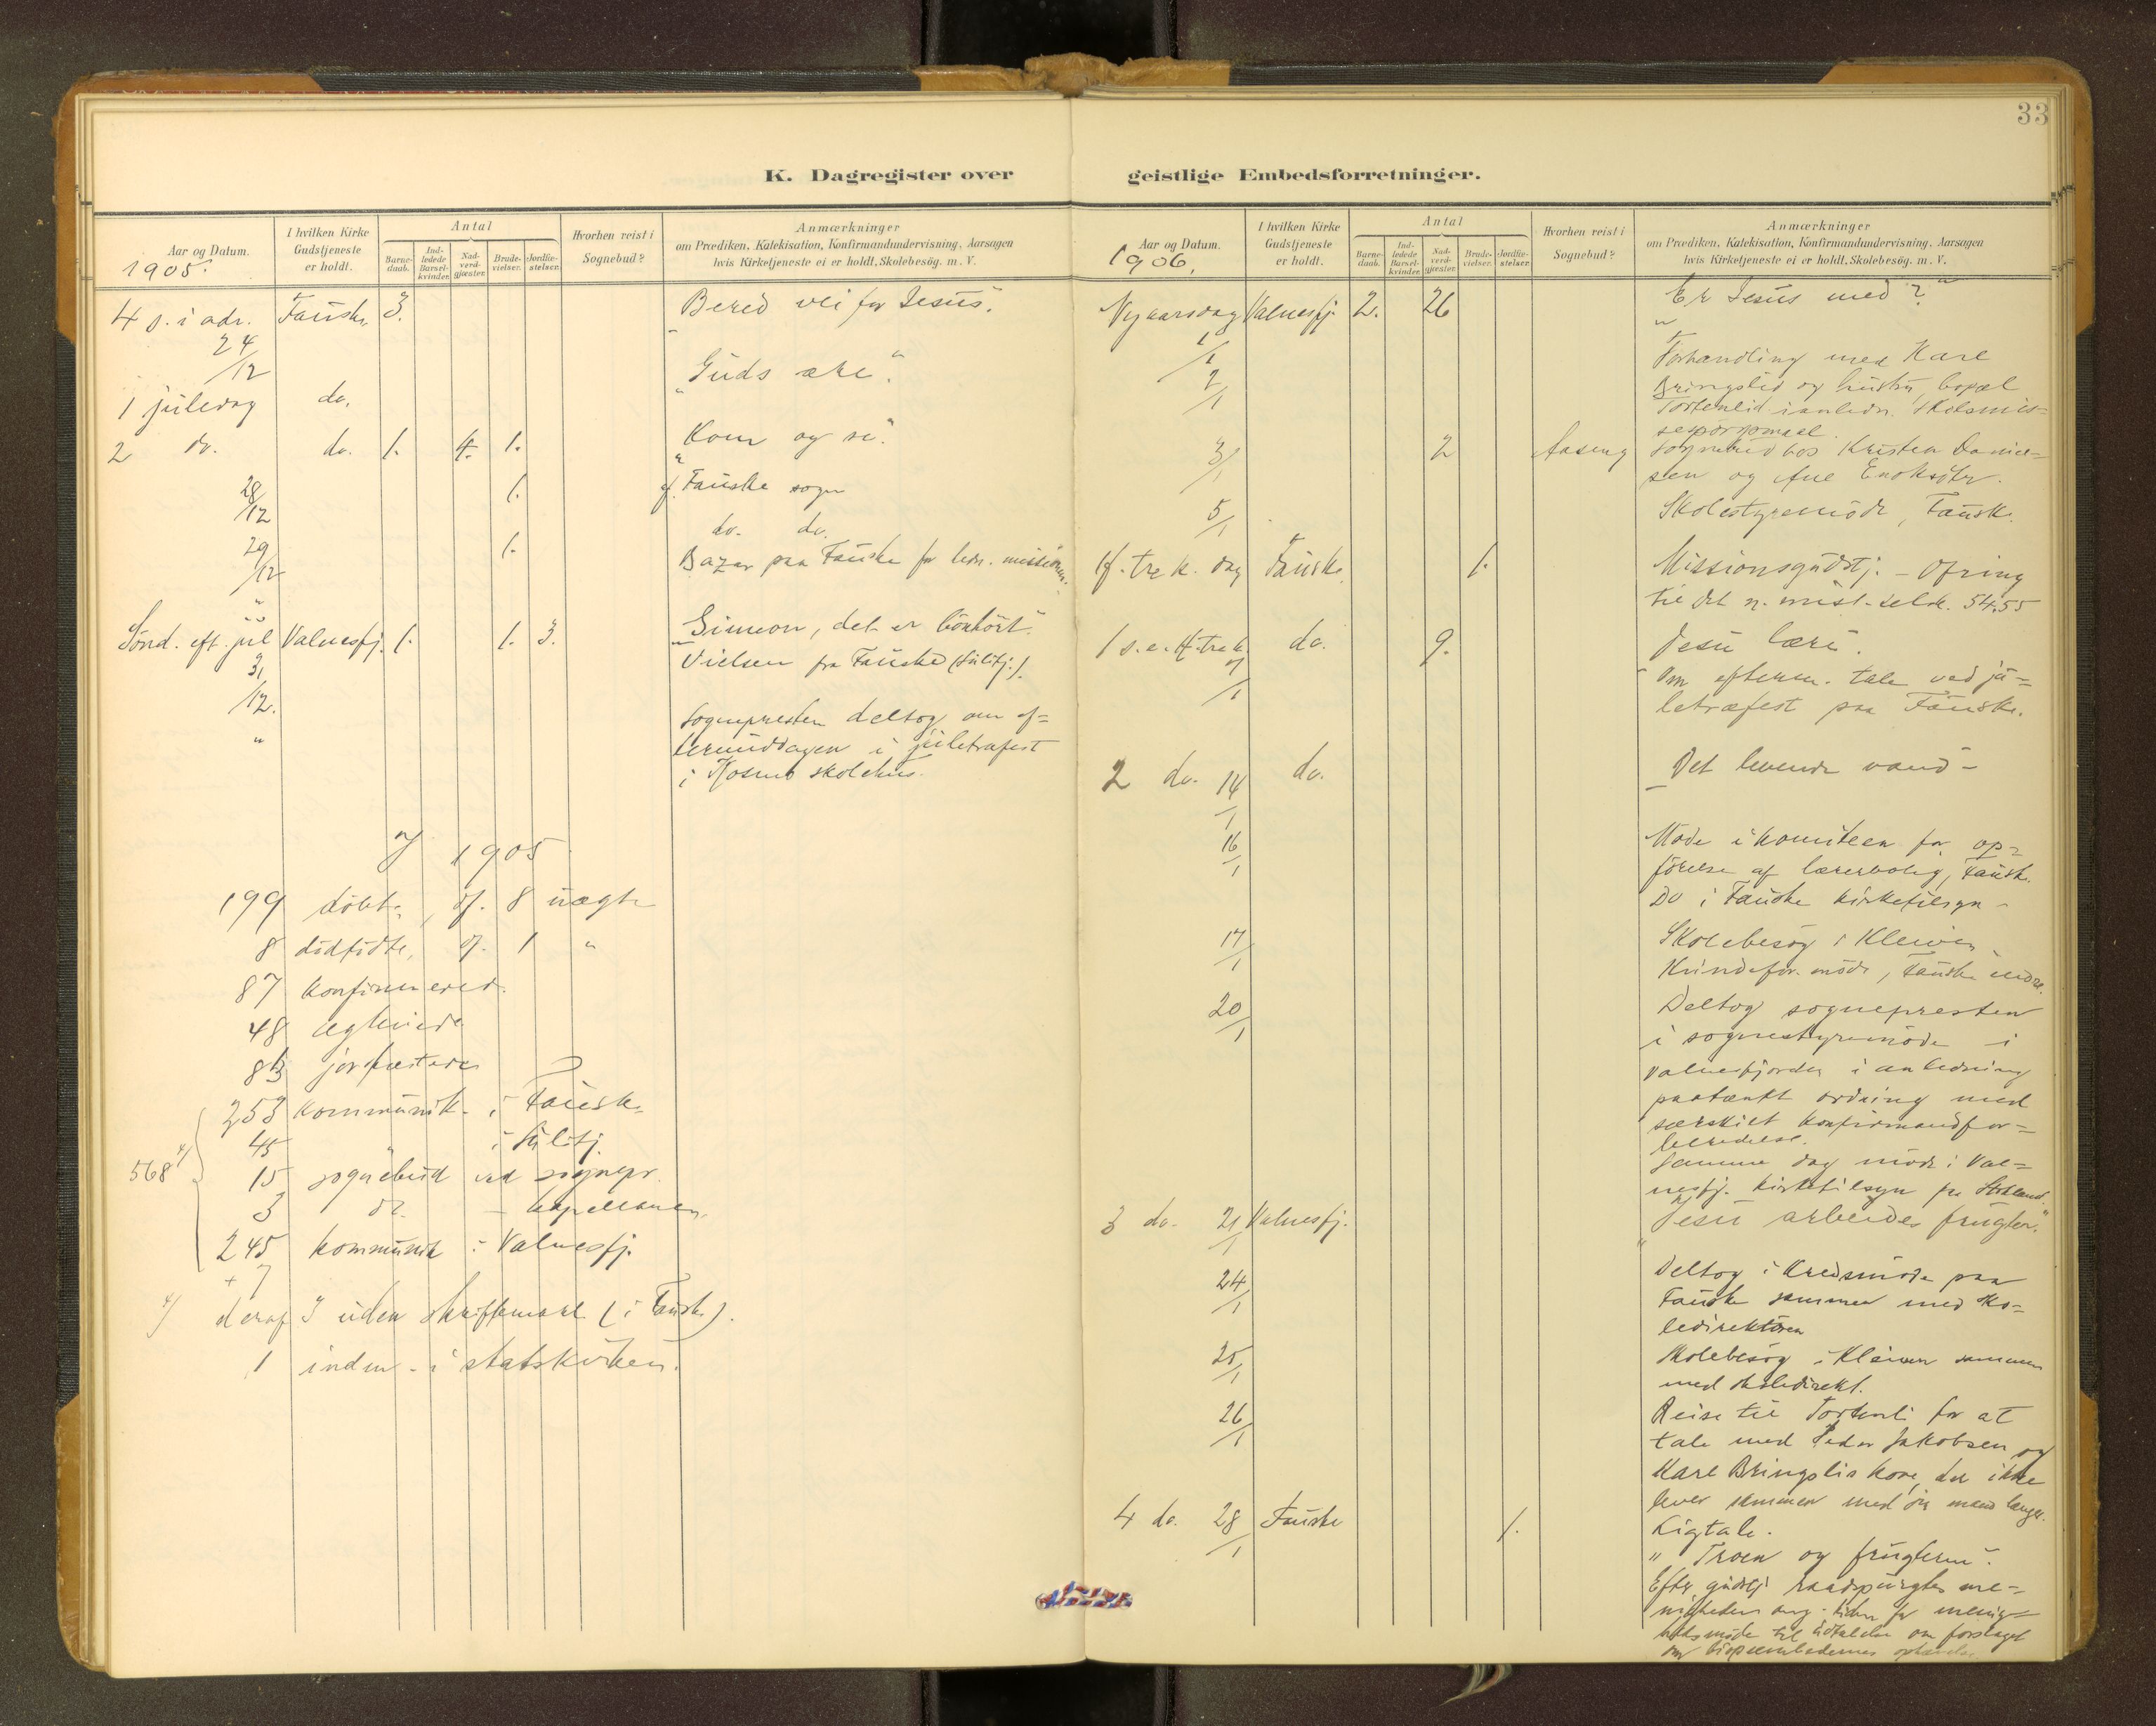 33
K. Dagregister over
Aar og Datum.
1905.
I hvilken Kirke
Gudstjeneste
er holdt.
Antal
Barne-
daab.
Ind-
ledede
Barsel-
kvinder.
Nad-
verd-
gjæster.
Brude-
vielser.
Jordfæ-
stelser.
Hvorhen reist i
Sognebud?
Anmærkninger
om Prædiken, Katekisation, Konfirmandundervisning, Aarsagen
hvis Kirketjeneste ei er holdt, Skolebesög. m. V.
4 s. i adv. Fauske 3. "Bered vei for Jesus".
24/12
1 juledag do. "Guds ære".
2 do. do. 1. 4. 1. "Kom og se".
28/12 1. af Fauske sogn
29/12 1. do. do.
" Bazar paa Fauske for mission.
Sönd. eft. jul Valnesfj. 1. 1. 3. "Simeon, det er bönhört".
31/12. Vielsen fra Fauske (Sulitj.).
" Sognepresten deltog om ef=
termiddagen i juletræfest
i Kosmo skolehus.
1905
199 döbte, af. 8 uægte
8 dödfödte, af. 1 "
87 konfirmerede.
48 ægteviede
83 jordfæstede
253 kommunik. i Fauske
45 " i Sulitj.
568 15 sognebud ved sognepr.
3 do. - kapellanen.
245 kommunik i Valnesfj.
+ 7
deraf 3 uden skriftemaal (i Fauske).
1 indm. i statskirken.
geistlige Embedsforretninger.
Aar og Datum.
1906.
I hvilken Kirke
Gudstjeneste
er holdt.
Antal
Barne-
daab.
Ind-
ledede
Barsel-
kvinder.
Nad-
verd-
gjæster.
Brude-
vielser.
Jordfæ-
stelser.
Hvorhen reist i
Sognebud?
Anmærkninger
om Prædiken, Katekisation, Konfirmandundervisning, Aarsagen
hvis Kirketjeneste ei er holdt, Skolebesög. m. V.
Nyaarsdag Valnesfj. 2. 26 "Er Jesus med?"
1/1
2/1 Forhandling med Karl
Bringslid og hustru, bopæl
Tortenlid i anledn. skilsmis=
sespörsmaal.
3/1 2 Aaseng Sognebud hos Kristen Daniel=
sen og Ane Enoksdtr.
5/1 Skolestyremöde, Fauske.
H. tre k. dag Fauske 1. Missionsgudstj. - Ofring
til det n. misi. selsk. 54.55
1 s. e. H. tre k. do. 9. Jesu lære.
7/1 Om efterm. tale ved ju=
letræfest paa Fauske.
2 do. 14/1 do. "Det levende vand"
16/1 Möde i komiteen for op=
förelse af lærerbolig, Fauske.
Do i Fauske kirketilsyn
17/1 Skolebesög i Kleiven
Kvindefor. möde, Fauske indre.
20/1 Deltog sognepresten
i sognestyremöde i
Valnesfjorden i anledning
paatænkt ordning med
særskilt konfirmandfor=
beredelse.
Samme dag möde i Val=
nesfj. kirketilsyn paa Strkland.
3 do. 21/1 Valnesfj. "Jesu arbeides frugter."
24/1 Deltog i kredsmöde paa
Fauske sammen med sko=
ledirektören
25/1 Skolebesög i Kleiven sammen
med skoledirekt.
26/1 Reise til Tortenli for at
tale med Peder Jakobsen og
Karl Bringslis kone, der ikke
lever sammen med sin mand længer.
4 do. 28/1 Fauske 1. Ligtale.
"Troen og frugterne".
Efter gudstj raadspurgtes me=
nigheden ang. tiden for menig=
hedsmöde til udtalelse om forslaget
om bispeembedernes